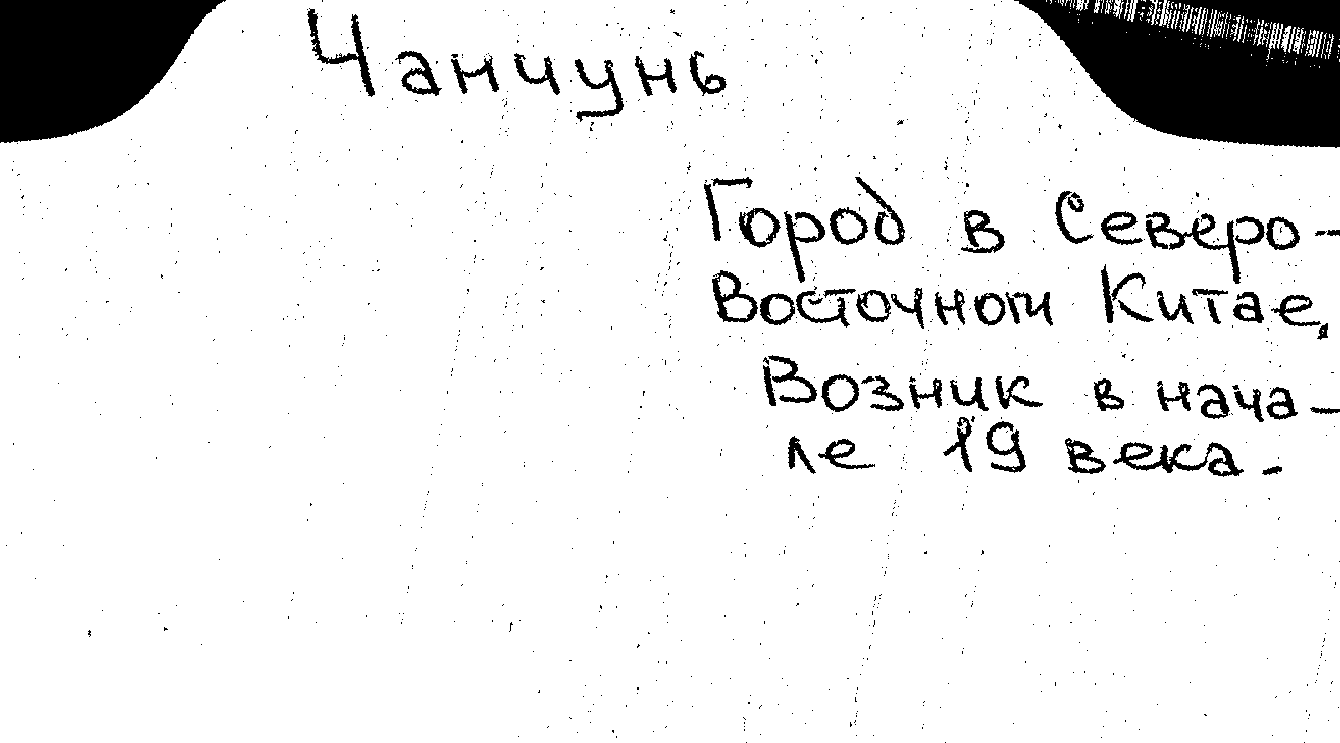 Чанчунь
Город в Северо-
Восточном Китае,
Возник в нача-
ле 19 века.